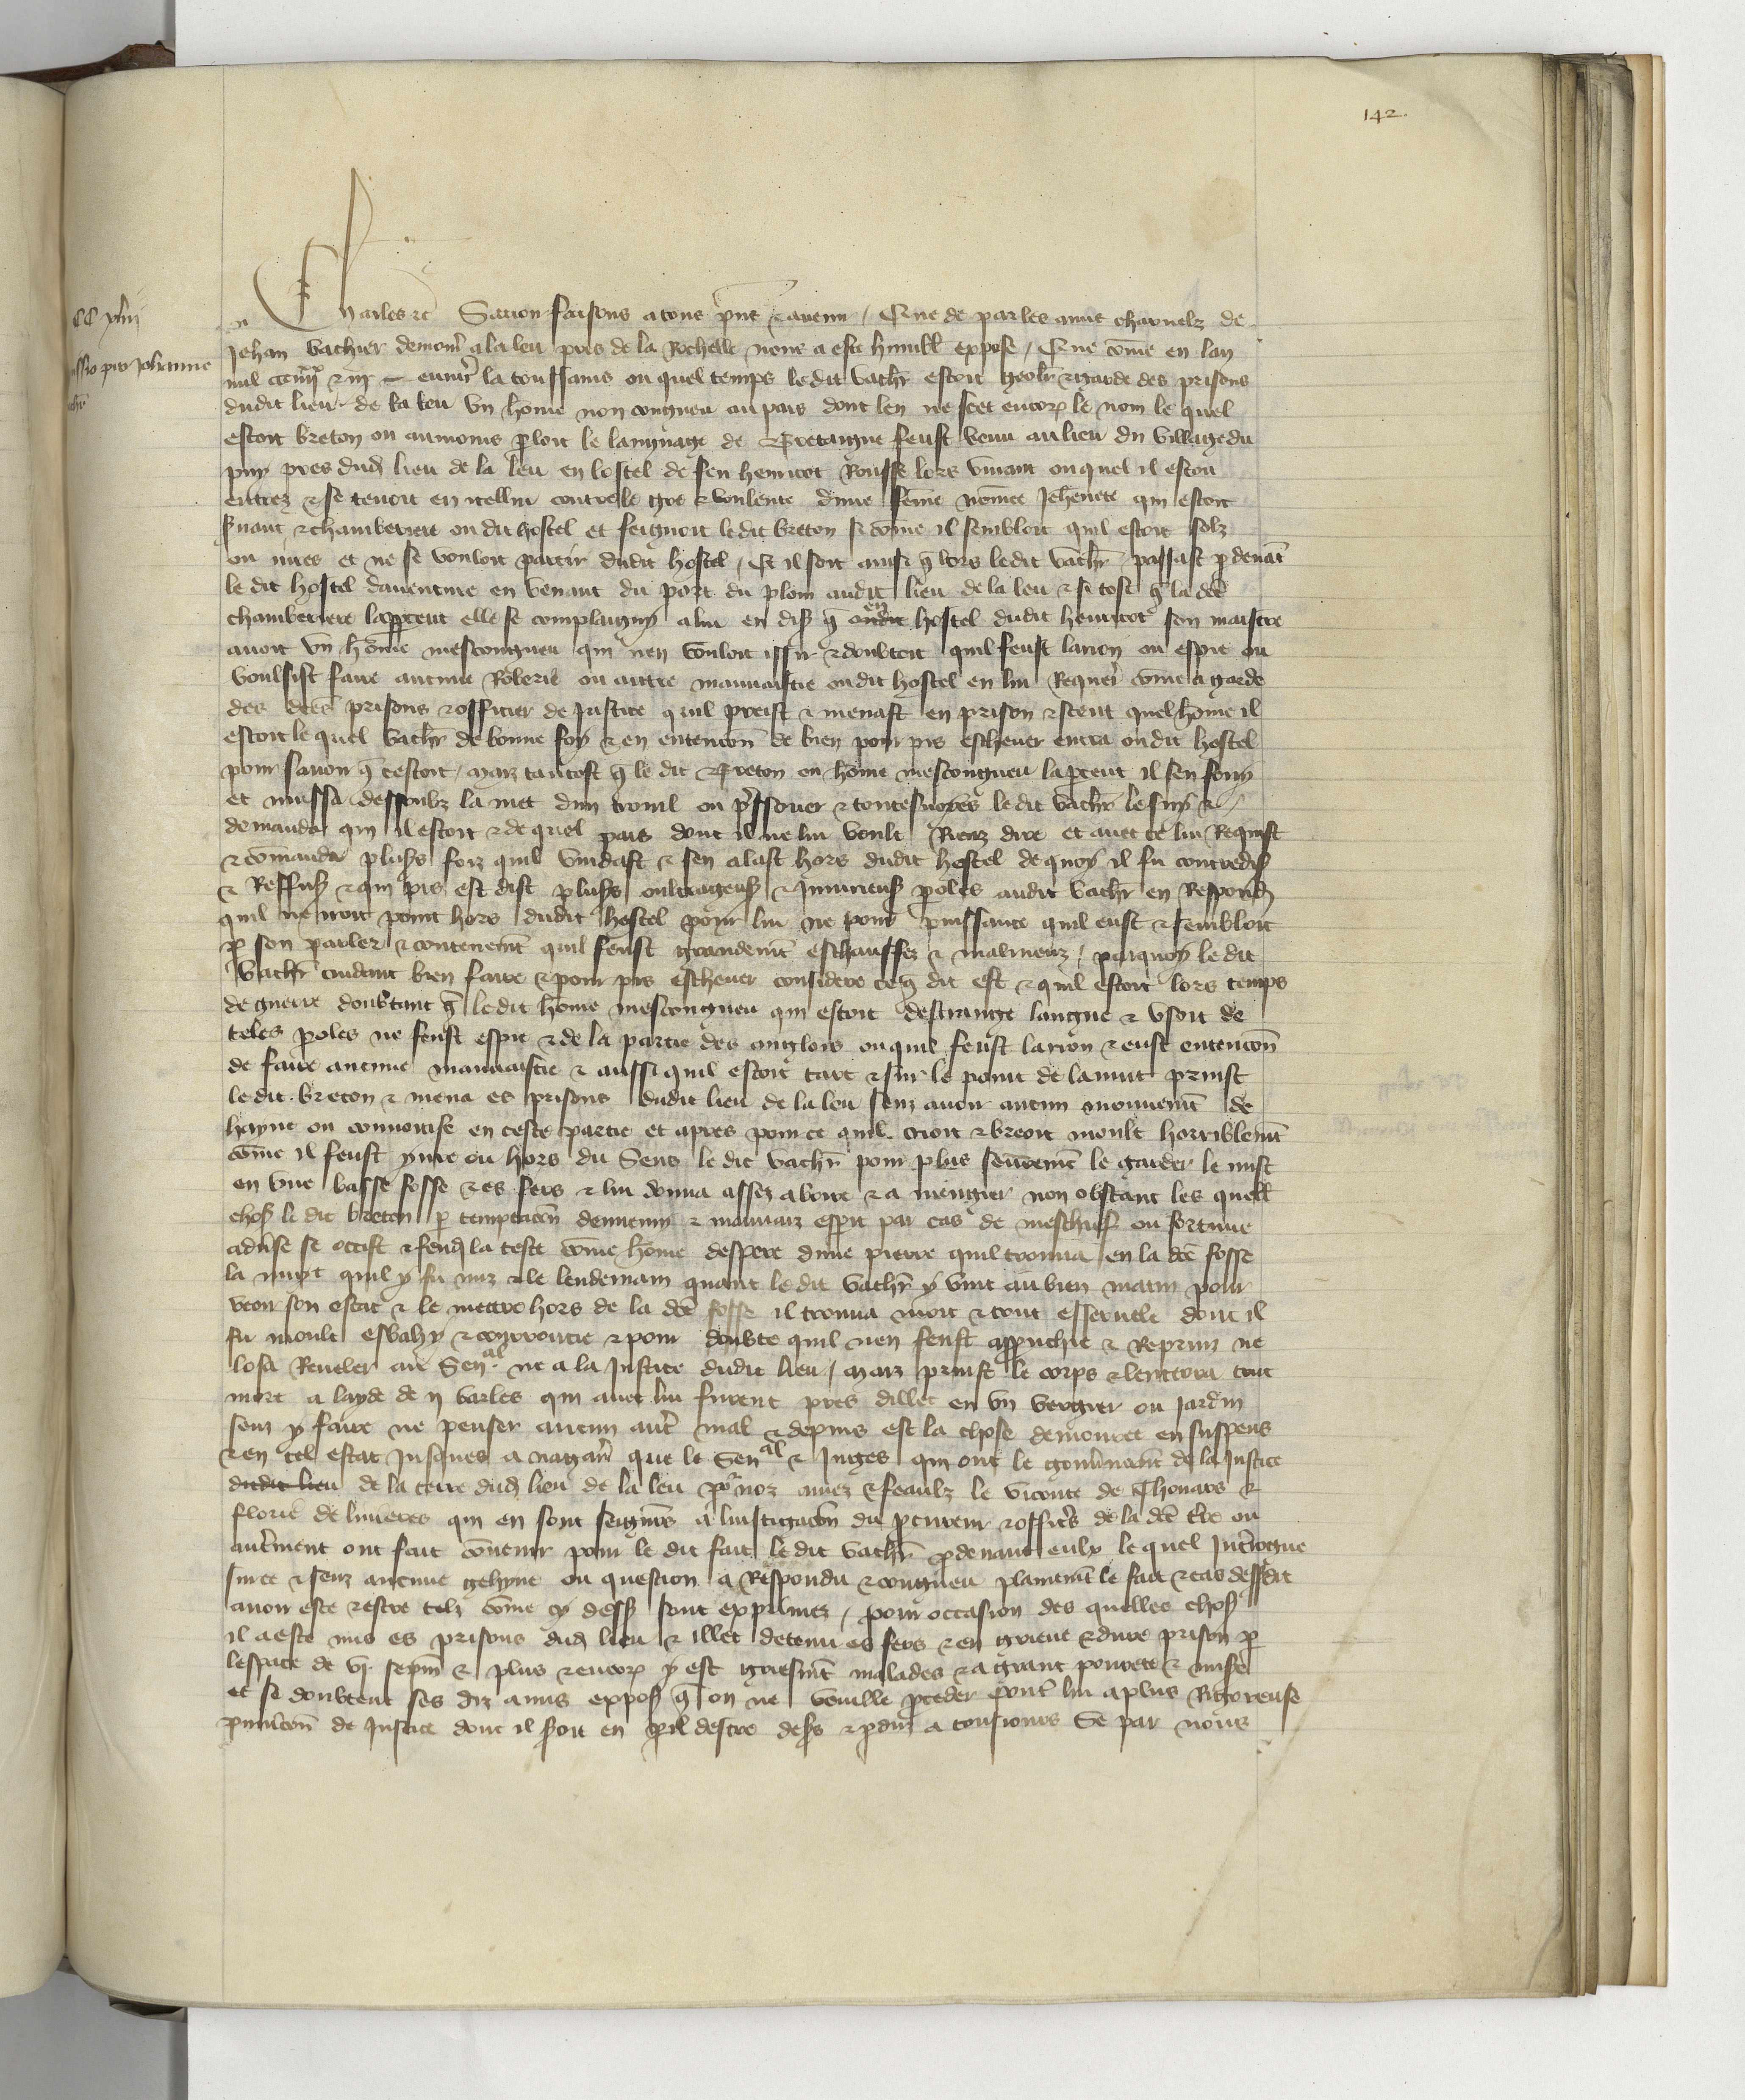 142.
CC xliii
ssio pro Johanne
Charles etc Savoir faisons a tous pñs et avenir / Que de par les amis charnelz de
Jehan Vachier demour̃ a la leu pres de la Rochelle nous a esté humbl̃ exposé / Que cõme en lan
mil et iij envir̃ la toussains ou quel temps ledit Vach̃r estoit geolier et garde des prisons
dudit lieu de la leu un hõme non congneu au pais dont len ne scet encor̃ le nom le quel
estoit breton ou aumoins ploit le langaige de Bretaigne feust venu au lieu du village du
puy pres dud̃ lieu de la leu en lostel de feu henriot Rousse lors vivant ouquel il estoit
entrez et se tenoit en icellui contre le gré et voulenté dune fẽme nõmée Jehẽnete qui estoit
s̃vant et chamberiere ou dit hostel et feignoit ledit breton si cõme il sembloit quil estoit folz
ou yvres et ne se vouloit partir dudit hostel / Et il soit ainsi q̃ lors ledit Vach̃r passast p devãt
le dit hostel daventure en venant du port du plom audit lieu de la leu et si tost q̃ la dc̃e
chamberiere lapceut elle se complaigny a lui en dis̃ q̃ oudit en hostel dudit henriot son maistre
avoit un hõme mescongneu qui nen vouloit issir et doubtoit quil feust larron ou espie ou
voulsist faire aucune Roberie ou autre mauvaistié ou dit hostel en lui Requer̃ cõme a garde
des dc̃es prisons et officier de Justice quil preist et menast en prison et sceut quel hõme il
estoit le quel Vach̃r de bonne foy et en entencõn de bien pour pis eschever entra ou dit hostel
pour savoir q̃ cestoit / maiz tantost q̃ le dit Breton ou hõme mescongneu lapceut il sen fouy
et mussa dessoubz la met dun trouil ou p̃ssouer et toutesvoies le dit Vach̃r le suy et
demanda qui il estoit et de quel pais dont il ne lui voult Riens dire et avec ce lui Requist
et cõmanda plus̃s foiz quil vuidast et sen alast hors dudit hostel de quoy il fu contredis̃
et Reffus̃ et qui pis est dist plus̃s oultrageus̃ et Injurieus̃ poles audit Vach̃r en Respond̃
quil ne iroit point hors dudit hostel pour lui ne pour puissance quil eust et sembloit
p son parler et contenemt̃ quil feust grandemt̃ eschauffez et malmeuz / parquoy le dit
Vach̃r cuidant bien faire et pour pis eschever consideré ce q̃ dit est et quil estoit lors temps
de guerre doubtant q̃ le dit hõme mescongneu qui estoit destrange langue et usoit de
teles poles ne feust espie et de la partie des anglois ou quil feust larron et eust entencõn
de faire aucune mauvaistié et aussi quil estoit tart et sur le point de la nuit prinst
le dit breton et mena es prisons dudit lieu de la leu senz avoir aucun mouvemt̃ de
hayne ou convoitise en ceste partie et apres pour ce quil crioit et breoit moult horriblemt̃
cõme il feust yvre ou hors du sens le dit Vach̃r pour plus seuremt̃ le garder le mist
en une basse fosse et es fers et lui donna assez a boire et a mengier non obstant les quell̃
chos̃ le dit breton p temptacõn dennemi et mauvaiz esprit par cas de meschief ou fortune
adv̂se se occist et fend̃ la teste cõme hõme desperé dune pierre quil trouva en la dc̃e fosse
la nuyt quil y fu miz et le lendemain quant le dit Vach̃r y vint au bien matin pour
veoir son estat et le mettre hors de la dc̃e fosse il trouva mort et tout esservelé dont il
fu moult esbahy et courroucié et pour doubte quil nen feust approuchié et Reprins ne
losa Reveler au Senal ne a la Justice dudit lieu / maiz prinst le corps et lenterra tout
mort a layde de ij varles qui avec lui furent pres dillec en un vergier ou Jardin
senz y faire ne penser aucun autr̃ mal et depuis est la chose demourée en suspens
et en tel estat Jusques a nagair̃ que le Senal et Juges qui ont le gouvernemt̃ de la Justice
dudit lieu de la terre dud̃ lieu de la leu pr noz amez et feaulx le viconte de Thouars et
florie de linieres qui en sont seigñrs a linstigacõn du pcureur et officr̃s de la dc̃e tr̃e ou
autr̃ment ont fait convenir pour le dit fait le dit Vach̃r p devant eulx le quel Intr̃rogue
sur ce et senz aucune gehyne ou question a Respondu et congneu plainemt̃ le fait et cas dessusdit
avoir esté et estre telz cõme cy dess̃ sont exprimez / pour occasion des quelles chos̃
il a esté mis es prisons dud̃ lieu et illec detenu es fers et en grieve et dure prison p
lespace de vj sepm̃ et plus et encor̃ y est griesmt̃ malades et a grant povreté et mis̃e
et se doubtent ses diz amis expos̃ q̃ on ne vueille pceder contr̃ lui a plus Rigoreuse
punicõn de Justice dont il s̃oit en pil destre des̃s et pdu a tousiours Se par nous